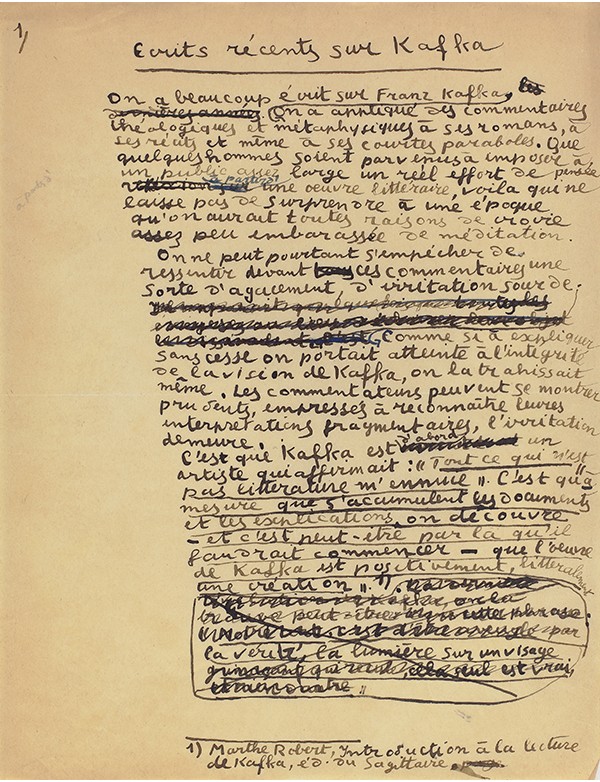 1)
Ecrits récents sur Kafka
On a beaucoup écrit sur Franz Kafka, les
dernières années. On a appliqué des commentaires
théologiques et métaphysiques à ses romans, à
ses récits et même à ses courtes paraboles. Que
quelques hommes soient parvenus à imposer à
un public assez large un réel effort de pensée
à partir d'une oeuvre littéraire, voila qui ne
laisse pas de surprendre à une époque
qu'on aurait toutes raisons de croire
assez peu embarassée de méditation.
On ne peut pourtant s'empêcher de
ressentir devant tous ces commentaires une
sorte d'agacement, d'irritation sourde.
c'est comme si à expliquer
sans cesse on portait atteinte à l'intégrité
de la vision de Kafka, on la trahissait
même. Les commentateurs peuvent se montrer
prudents, empressés à reconnaître leures
interprétations fragmentaires, l'irritation
demeure.
C'est que Kafka est d'abord un
artiste qui affirmait : "Tout ce qui n'est
pas littérature m'ennuie". C'est qu'"à
mesure que s'accumulent les documents
et les explications, on découvre
- et c'est peut-etre par la qu'il
faudrait commencer - que l'oeuvre
de Kafka est positivement, littéralement
une création". 1)
on la
trouve peut-être cette phrase.
"Notre art c'est d'être aveuglé par
la verité, la lumière sur un visage
grimaçant qui recule, cela seul est vrai,
"
1) Marthe Robert, Introduction à la lecture
de Kafka, éd. du Sagittaire